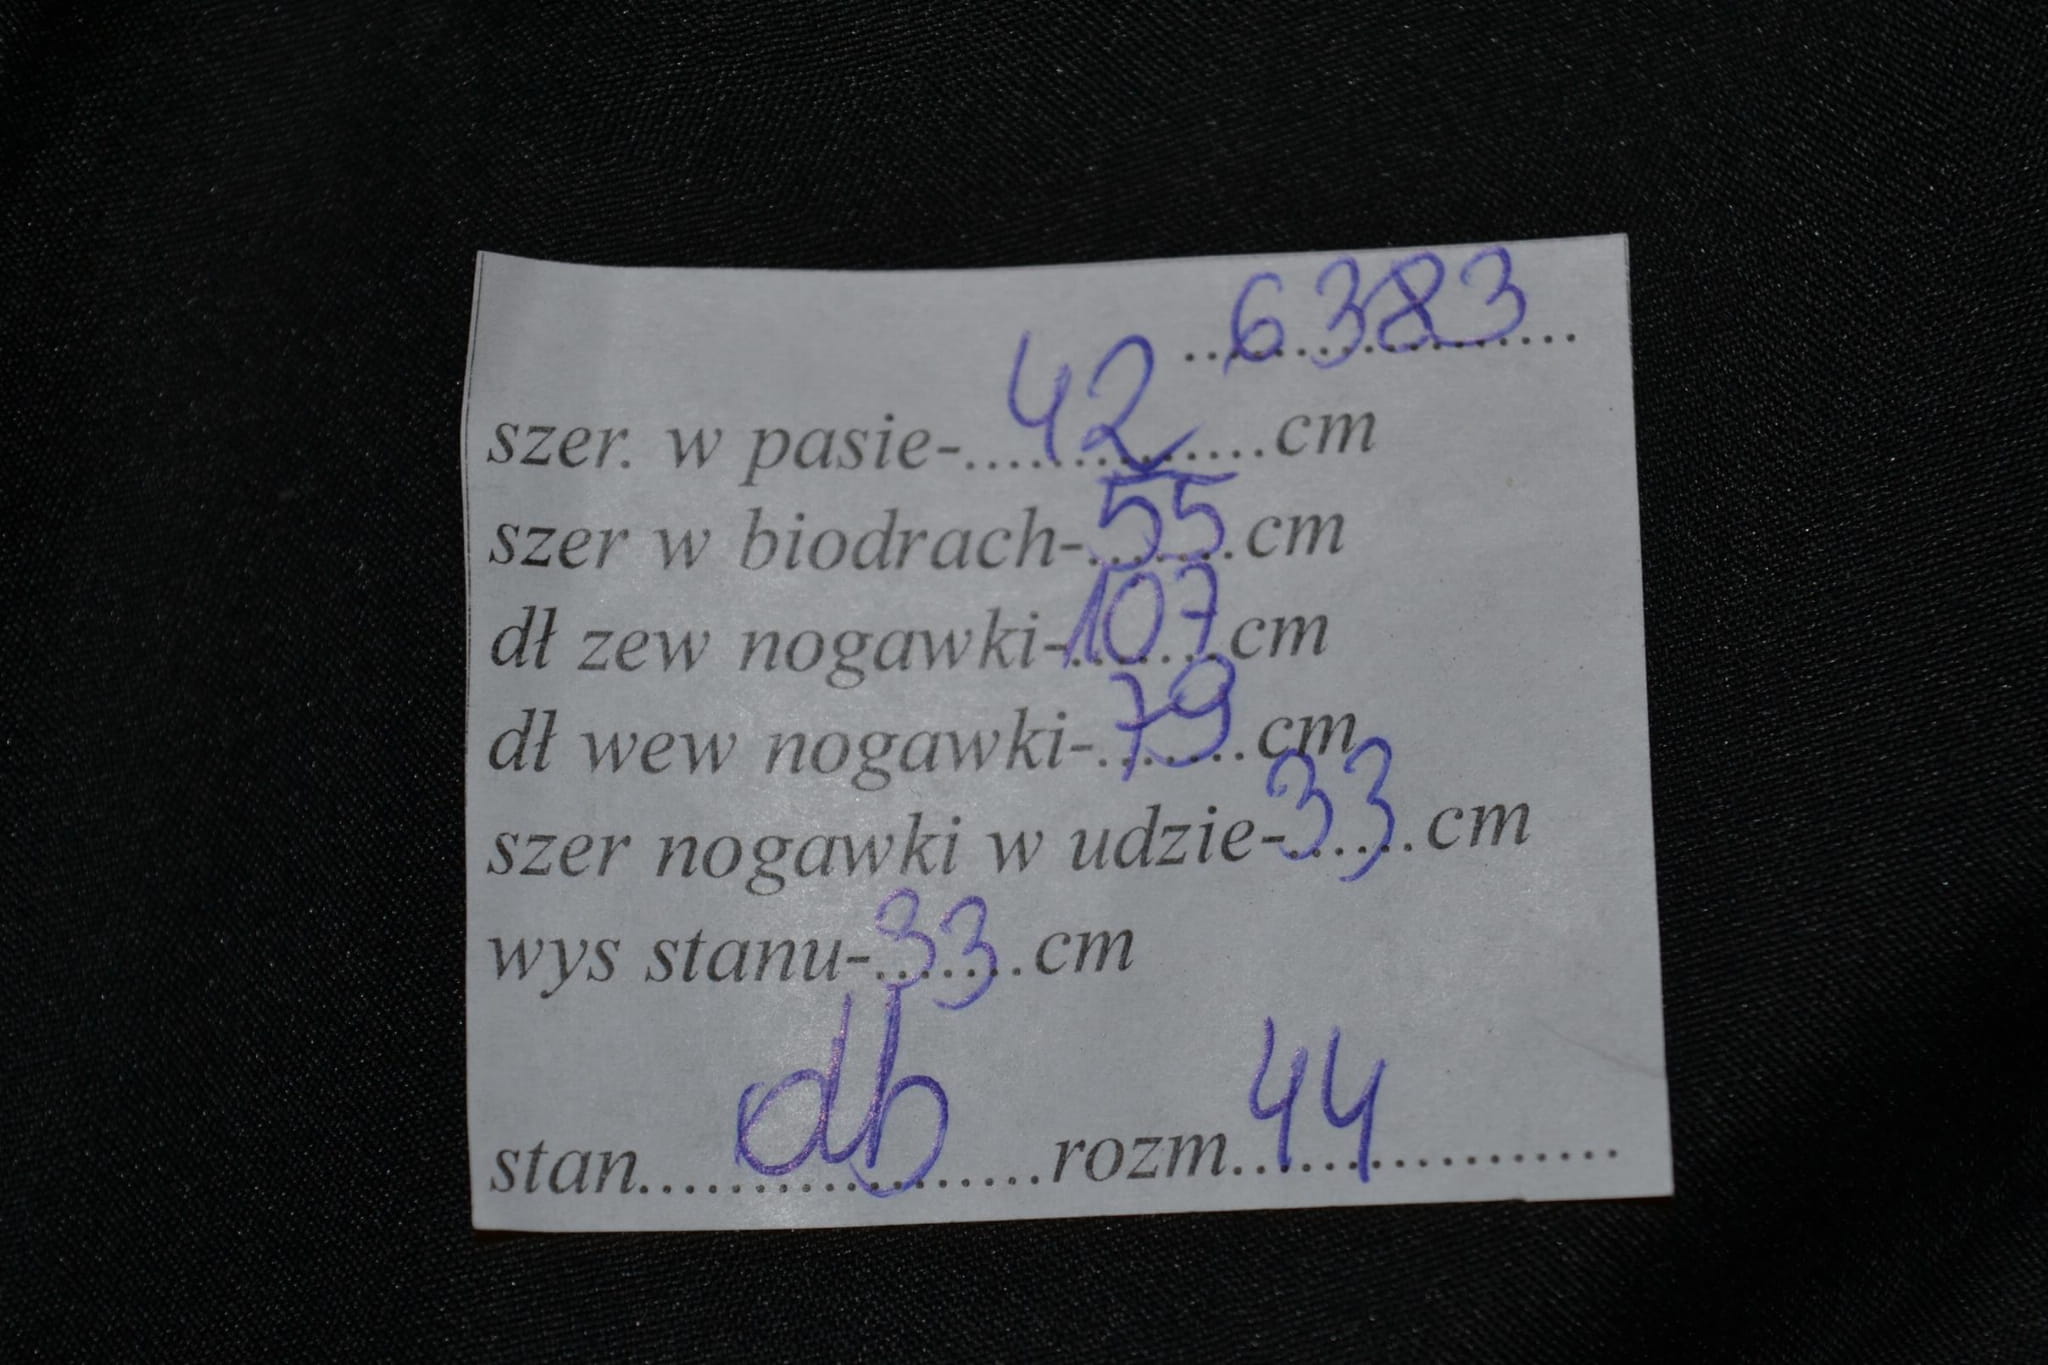 ..6383..
szer. w pasie-....42....cm
szer w biodrach-..55..cm
dł zew nogawki-..107..cm
dł wew nogawki-..79..cm
szer nogawki w udzie-..33..cm
wys stanu-..33..cm
stan....db....rozm..44........